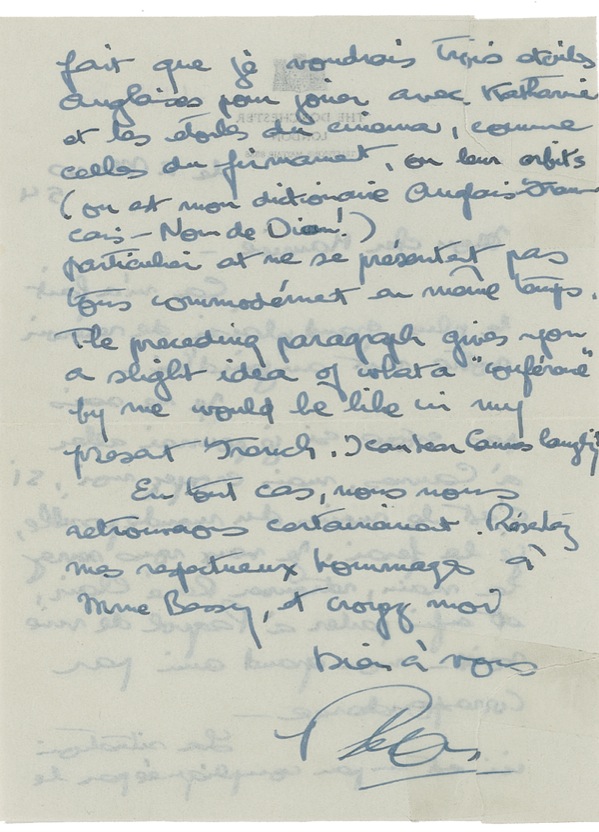 fait que je voudrais trois étoiles
anglaises pour jouer avec Katharine
et les étoiles du cinema, comme
celles du firmament, on leur orbits
(ou est mon dictionaire Anglais-Fran-
cais — Nom de Dieu!)
particulier et ne se présentent pas
tous commodément en même temps.
The preceding paragraph gives you
a slight idea of what a "conférence"
by me would be like in my
present French. I can hear Cannes laughing
En tout cas, nous nous
retrouverons certainement. Présentez
mes respectueux hommages à
Mme Bessy, et croyez moi
bien à vous